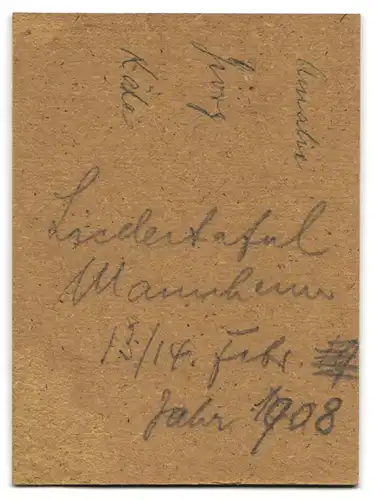 Amalie
Georg
Käte
Liedertafel
Mannheim
13/14. Febr.
Jahr 1908